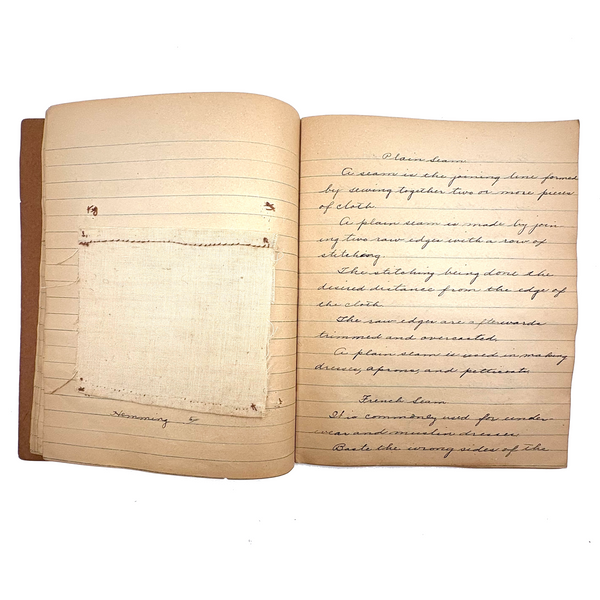 Hemming
Plain Seam
A seam is the joining line formed
by sewing together two or more pieces
of cloth.
A plain seam is made by join-
ing two raw edges with a row of
stitching
The stitching being done the
desired distance from the edge of
the cloth
The raw edges are afterwards
trimmed and overcasted.
A plain seam is used in making
dresses, aprons, and petticoats.
French Seam
It is commonly used for under-
wear and muslin dresses
Baste the wrong sides of the